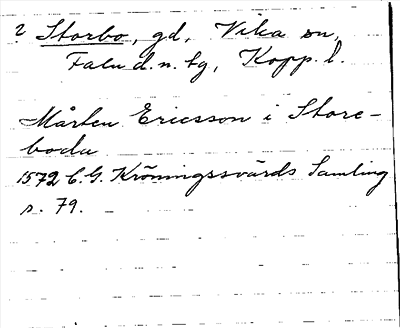 ? Storbo, gd, Vika sn,
Falu d. n. tg, Kopp. l.
Mårten Ericsson i Store-
boda
1572 C. G. Kröningssvärds Samling
s. 79.